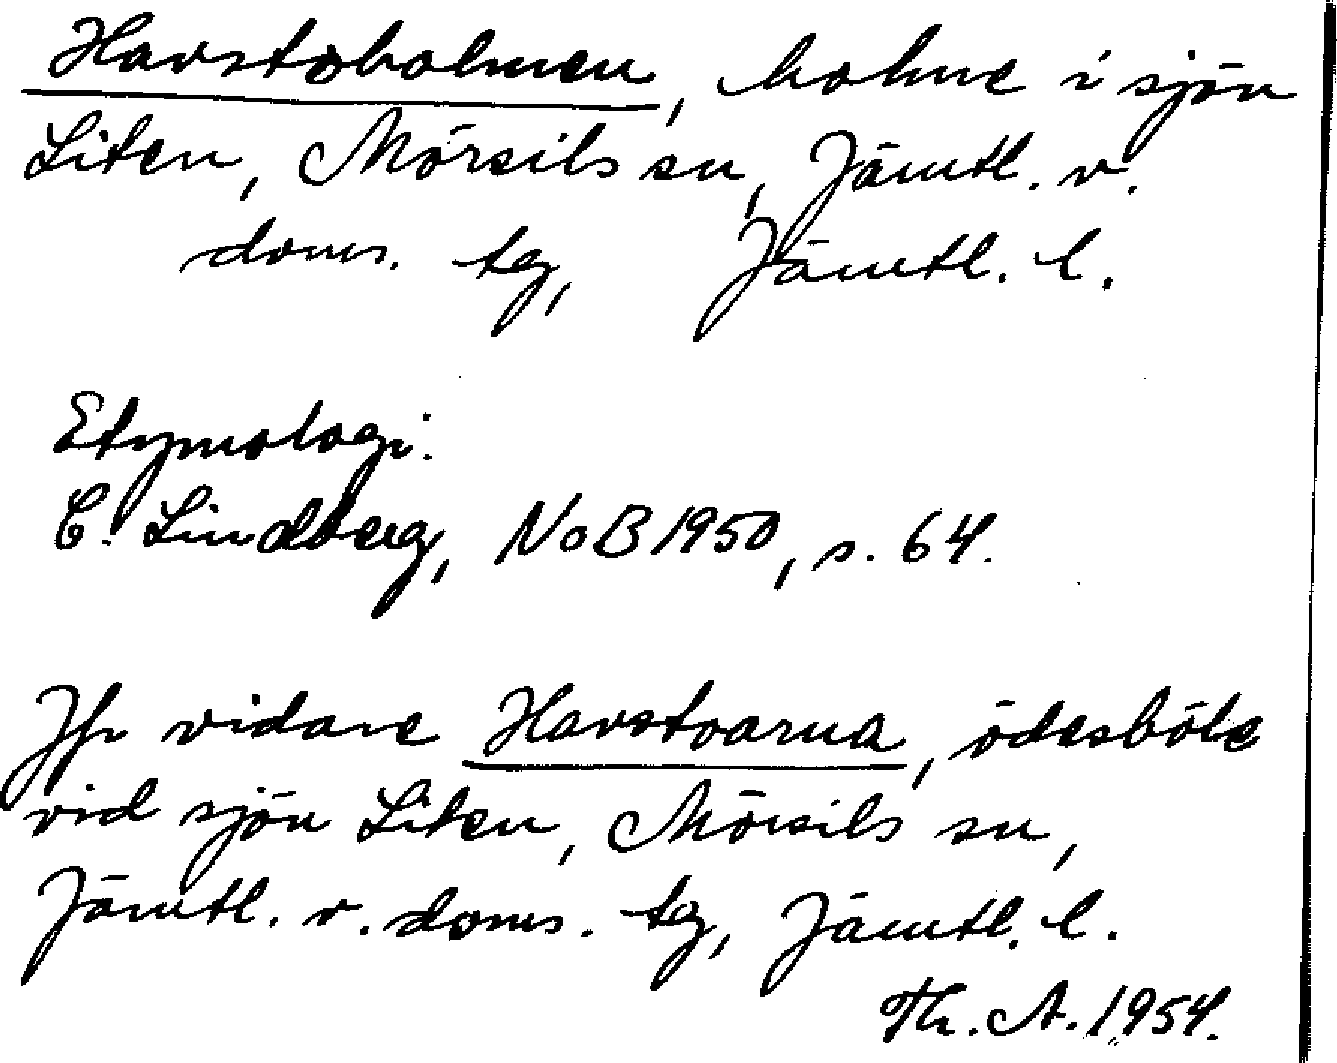 Havstoholmen, holme i sjön
Liten, Mörsils sn, Jämtl. v.
doms. tg, Jämtl. l.
Etymologi:
C. Lindberg, NoB 1950, s. 64.
Jfr vidare Havstoarna, ödesböle
vid sjön Liten, Mörsils sn,
Jämtl. v. doms. tg, Jämtl. l.
Th. A. 1954.